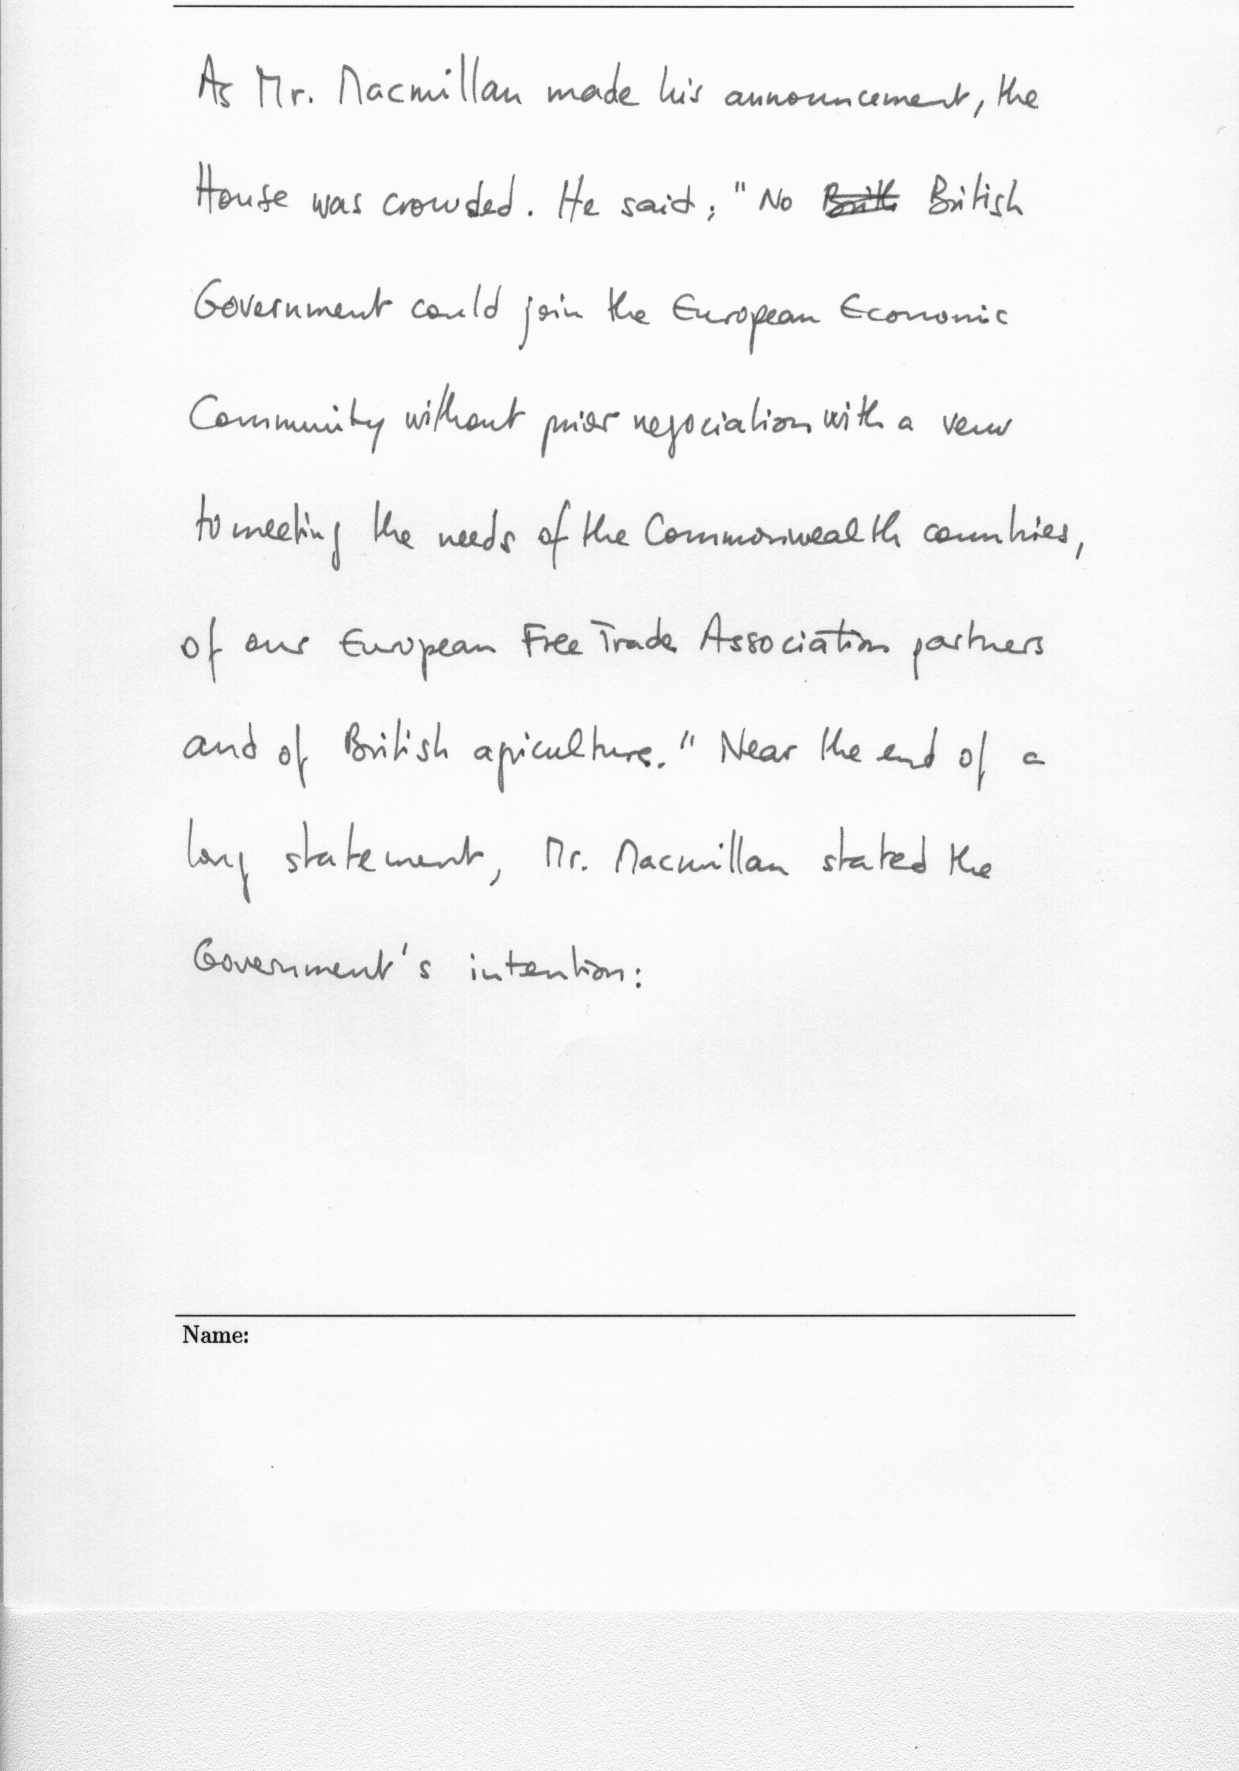 As Mr. Macmillan made his announcement, the
House was crowded. He said: "No British
Government could join the European Economic
Community without prior negociation with a view
to meeting the needs of the Commonwealth countries,
of our European Free Trade Association partners
and of British agriculture." Near the end of a
long statement, Mr. Macmillan stated the
Government's intention:
Name: